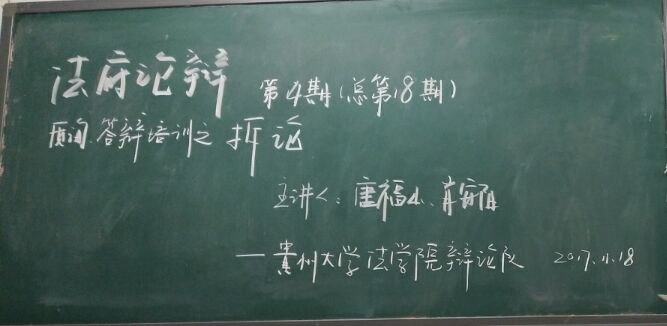 法府论辩 第4期(总第18期)
质询、答辩培训之 拆论
主讲人:唐福
——贵州大学法学院辩论队 2017.11.18